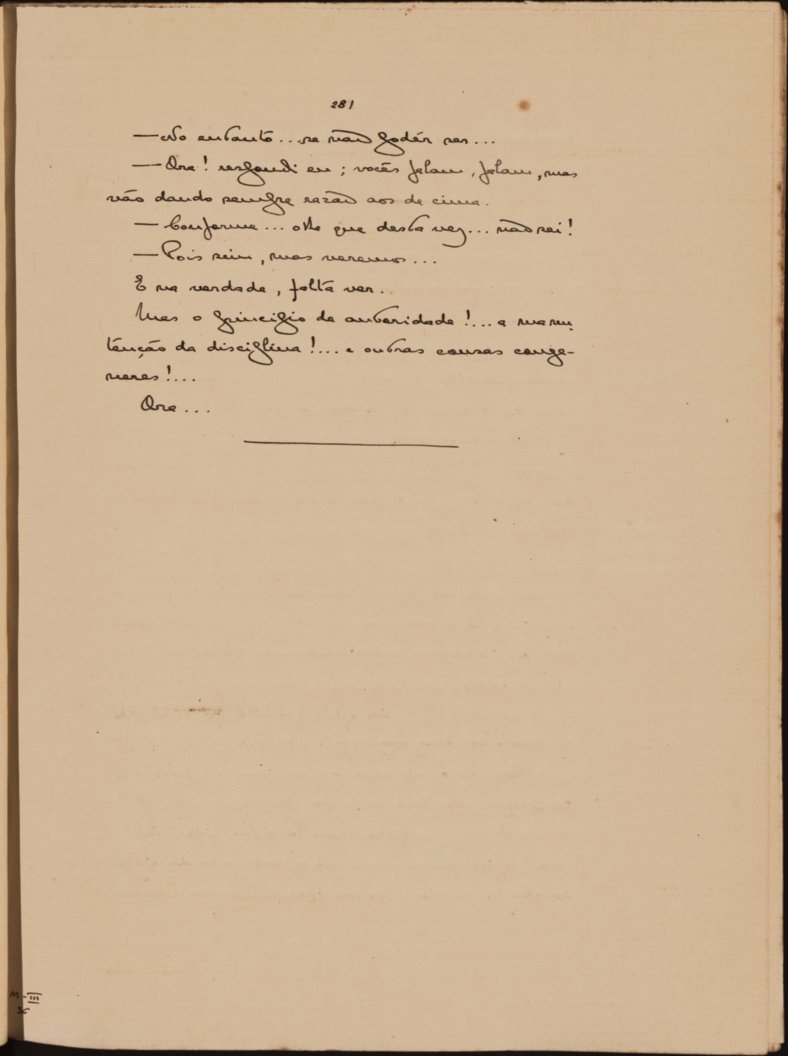 281
— No entanto... se não podér ser...
— Ora! respondi eu; vocês falam, falam, mas
vão dando sempre razão aos de cima.
— Conforme... olhe que desta vez... não sei!
— Pois sim, mas veremos...
E na verdade, falta ver..
Mas o principio de autoridade!... a manu
tenção da disciplina!... e outras cousas conge-
neres!...
Ora...
M-III
36